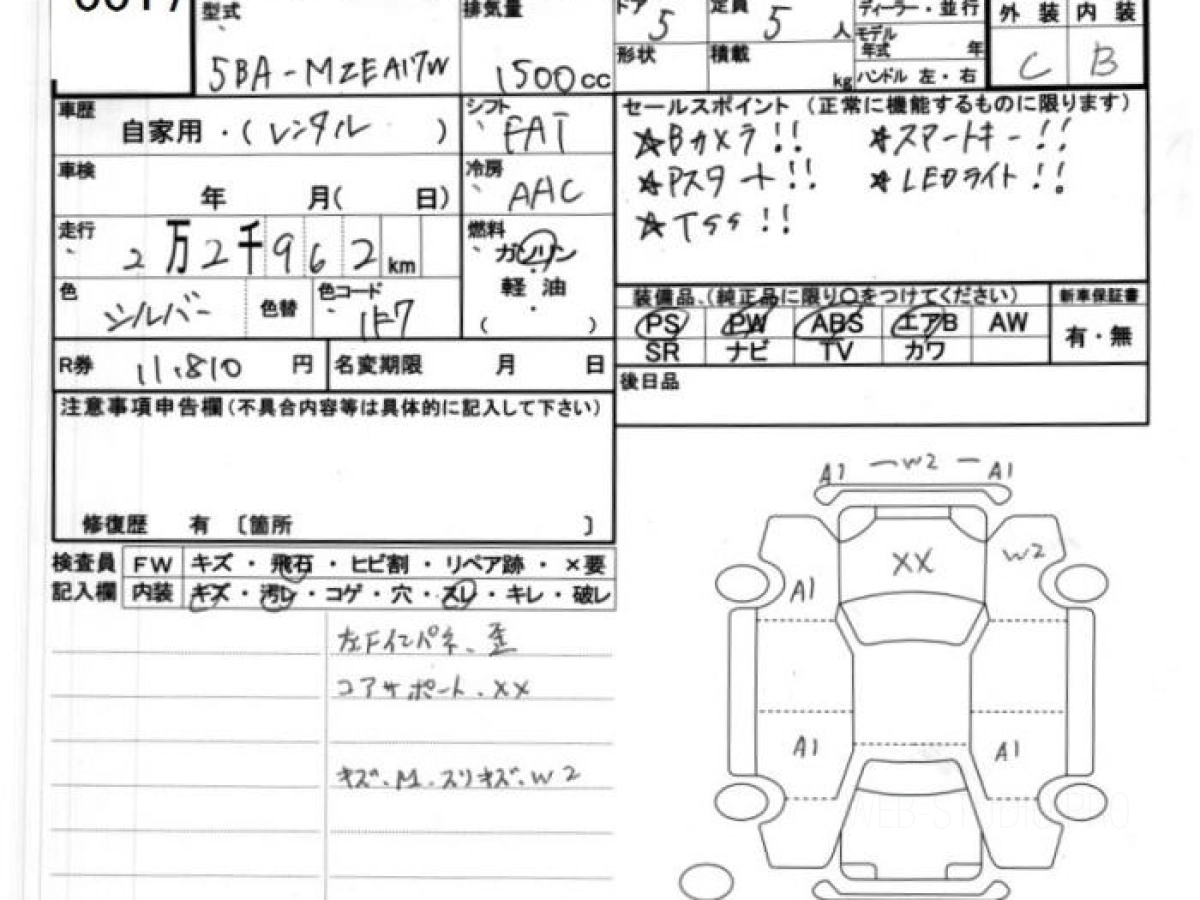 型式 排気量 ドア 5 定員 5 人 ディーラー・並行 外装 内装
5BA-MZEA17W 1500cc 形状 積載 kg モデル年式 年 C B
ハンドル 左・右
車歴 自家用・(レンタル) シフト FAT セールスポイント(正常に機能するものに限ります)
☆Bカメラ!! ☆スマートキー!!
車検 年 月( 日) 冷房 AAC ☆Pスタート!! ☆LEDライト!!
走行 2万2千962km 燃料 ガソリン ・ 軽油 ・ ( ) ☆TSS!!
色 シルバー 色替 色コード 1F7
装備品、(純正品に限り○をつけてください) 新車保証書
PS PW ABS エアB AW 有・無
SR ナビ TV カワ
R券 11,810 円 名変期限 月 日 後日品
注意事項申告欄(不具合内容等は具体的に記入して下さい)
修復歴 有 〔箇所 〕
検査員記入欄 FW キズ・飛石・ヒビ割・リペア跡・×要
内装 キズ・汚レ・コゲ・穴・スレ・キレ・破レ
左Fインパネ、歪
コアサポート、XX
キズ、M、スリキズ、W2
A1 ーW2ー A1
XX W2
A1
A1 A1
WEB-STUDIO.PRO